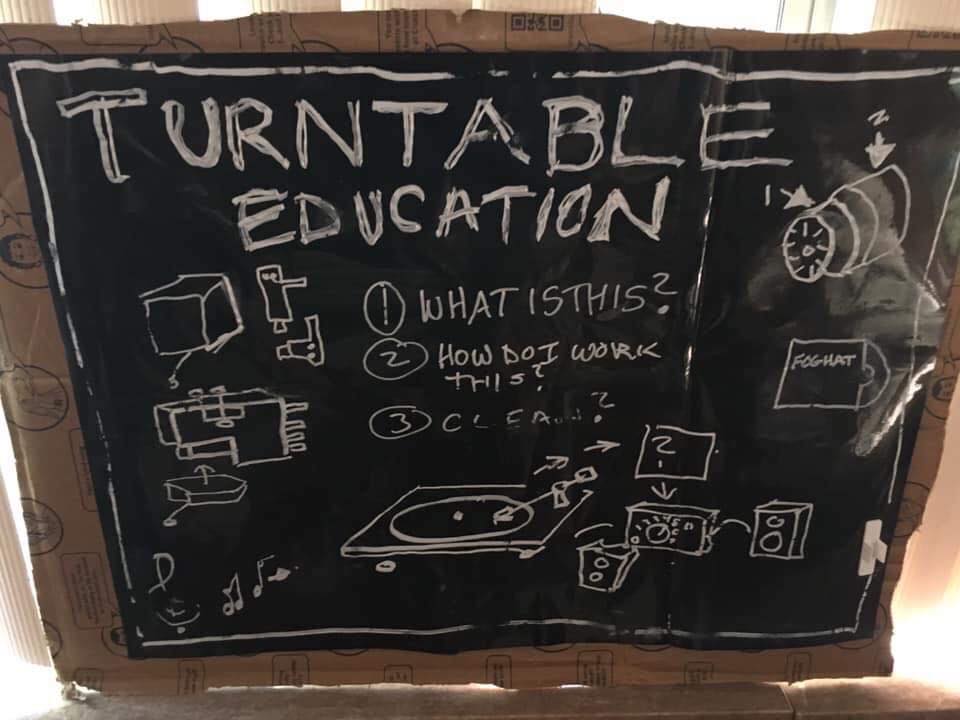 TURNTABLE
EDUCATION
1 WHAT IS THIS?
2 HOW DO I WORK
THIS?
3 CLEAN?
1
2
FOGHAT
?